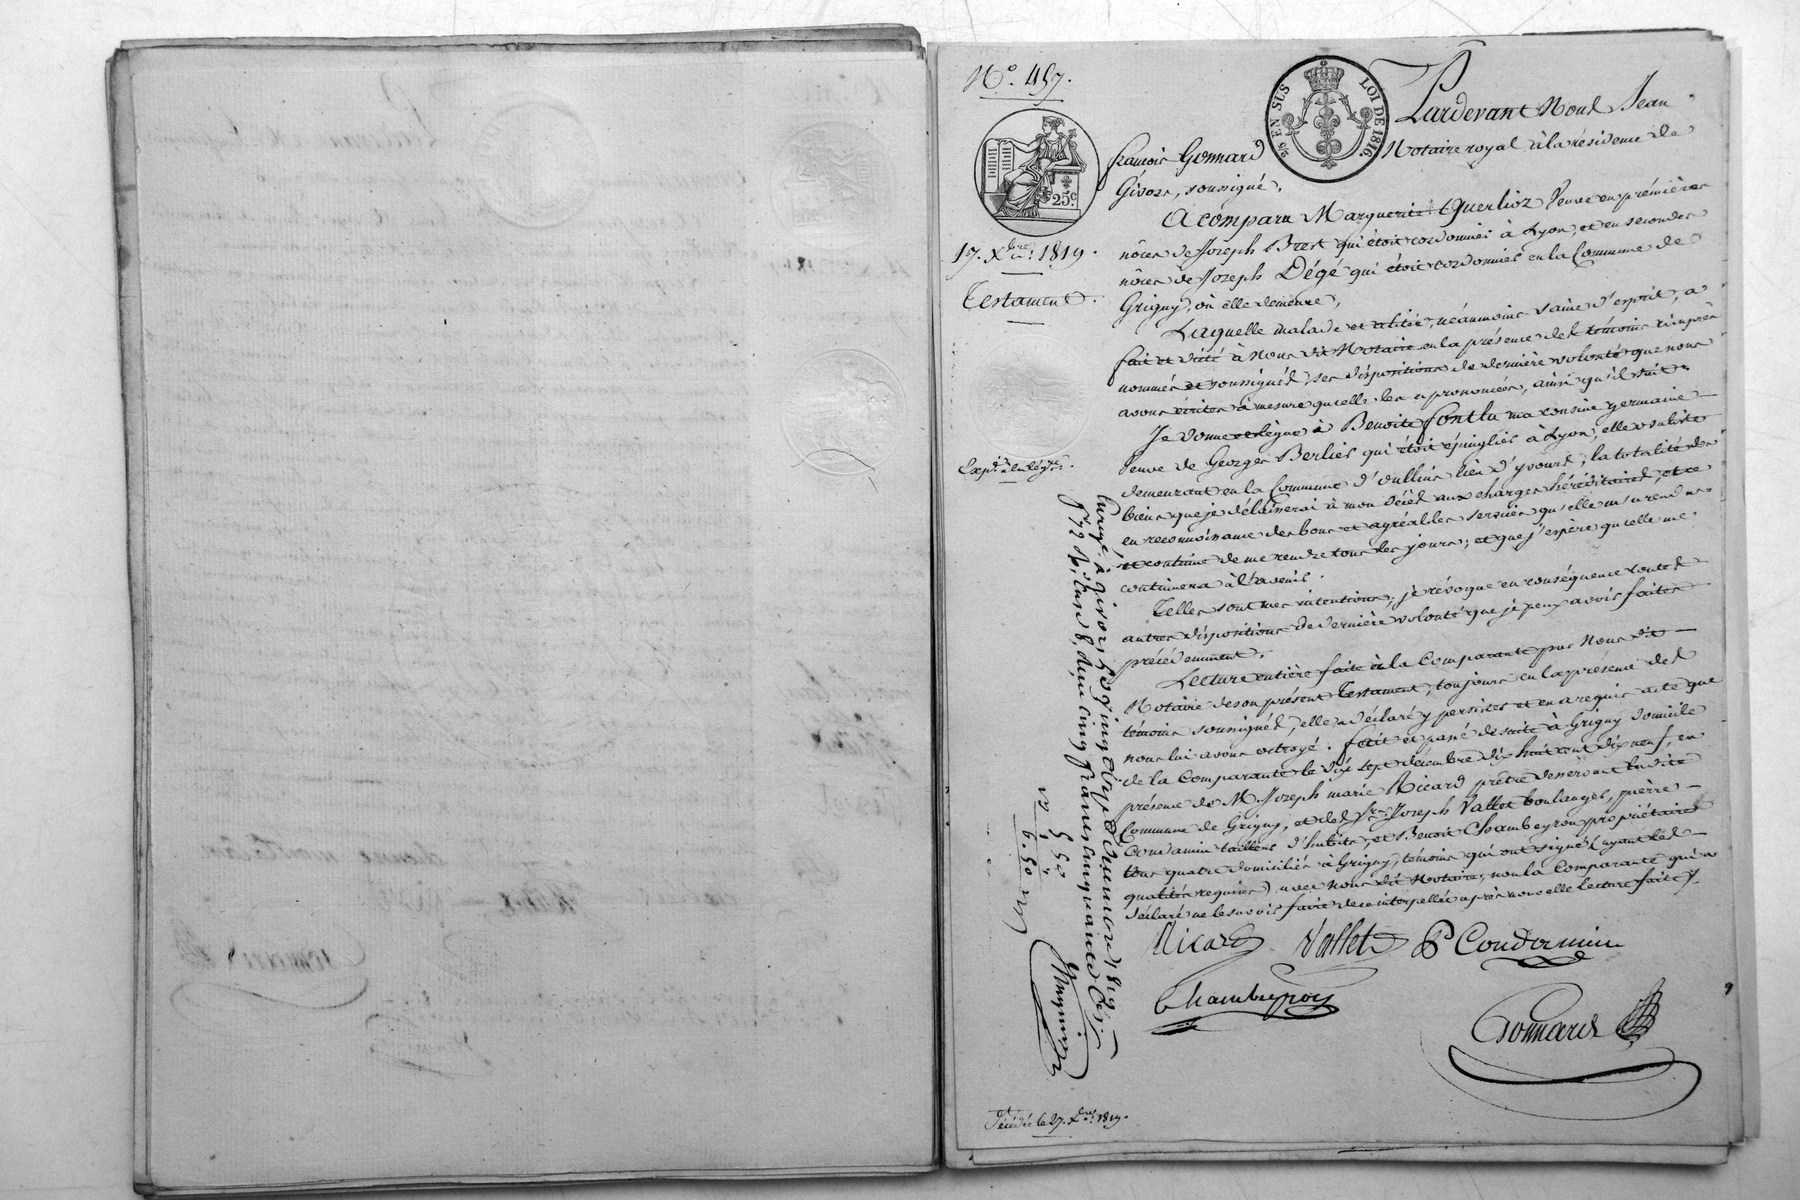 N.° 457.
25 EN SUS LOI DE 1816.
25.c
17. Xbre. 1819.
Testament.
Pardevant Nous Jean
françois Gonnard Notaire royal à la résidence de
Givors, soussigné,
A comparu Marguerite Querlioz Veuve en premières
nôces de Joseph Brest qui étoit cordonnier à Lyon, et en secondes
nôces de Joseph Dégé qui étoit cordonnier en la Commune de
Grigny, où elle demeure,
Laquelle malade et alitée, néanmoins saine d'esprit, a
fait et dicté à Nous dit Notaire en la présence des témoins ci après
nommés et soussignés, ses dispositions de dernière volonté que nous
avons écrites à mesure qu'elle les a prononcées, ainsi qu'il suit:
Je donne et lègue à Benoite fontlu ma cousine germaine
Veuve de Georges Berlier qui étoit épinglier à Lyon, elle rentière
demeurant en la Commune d'oullins lieu d'yvours, la totalité des
biens que je délaisserai à mon décès aux charges héréditaires, et ce
en reconnoissance des bons et agréables services qu'elle m'a rendus
et continue de me rendre tous les jours; et que j'espère qu'elle me
continuera à l'avenir.
Telles sont mes intentions; je révoque en conséquence toutes
autres dispositions de dernière volonté que je peux avoir faites
précédemment.
Lecture entière faite à la Comparante par Nous dit
Notaire de son présent Testament, toujours en la présence des
témoins soussignés, elle a déclaré y persister et en a requis acte que
nous lui avons octroyé. fait et passé de suite à Grigny domicile
de la Comparante le dix sept décembre dix huit cent dix neuf, en
présence de M. Joseph marie Ricard prêtre desservant ladite
Commune de Grigny, et des Srs. Joseph Vallet boulanger, pierre
Condamin tailleur d'habits, et Benoit Chambeyron propriétaire
tous quatre domiciliés à Grigny, témoins qui ont signé (ayant les
qualités requises) avec nous dit Notaire, non la Comparante qui a
déclaré ne le savoir faire de ce interpellée après nouvelle Lecture faite
Ricard Vallet P Condamin
Chambeyron
Gonnard
Expd. en Légre.
Enregé. à Givors le vingt sept décembre 1819
f. 72 Vo. Case 8, reçu cinq francs cinquante cts.
5
50
5. 50
Décédée le 27. Xbre. 1819.